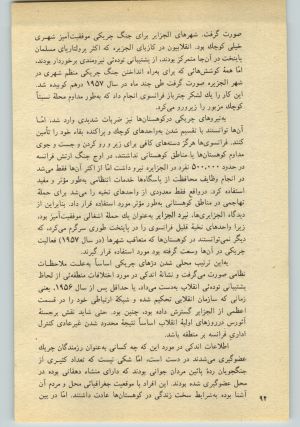 صورت گرفت. شهرهای الجزایر برای جنگ چریکی موفقیت‌آمیز شهری
خیلی کوچك بود. انقلابیون در کازبای الجزیره که اکثر پرولتاریای مسلمان
پایتخت در آن‌جا متمرکز بودند، از پشتیبانی توده‌ئی نیرومندی برخوردار بودند،
امّا همهٔ کوشش‌هائی که برای به‌راه انداختن جنگ چریکی منظم شهری در
شهر الجزیره صورت گرفت طی چند ماه در سال ۱۹۵۷ درهم کوبیده شد.
این کار را یك لشکر چترباز فرانسوی انجام داد که به‌طور مداوم محلهٔ نسبتاً
کوچك مزبور را زیرورو می‌کرد.
به‌نیروهای چریکی درکوهستان‌ها نیز ضربات شدیدی وارد شد. امّا
آن‌ها توانستند با تقسیم شدن به‌واحدهای کوچك و پراکنده بقاء خود را تأمین
کنند. فرانسوی‌ها هرگز دسته‌های کافی برای زیر و رو کردن و جست و جوی
مداوم کوهستان‌ها یا مناطق کوهستانی نداشتند. در اوج جنگ ارتش فرانسه
در حدود ۵۰۰،۰۰۰ نفر در الجزیره نیرو داشت امّا از اکثر آن‌ها فقط می‌شد
در انجام وظایف محافظت، از پاسگاه‌ها خدمات انتظامی به‌طور مؤثر و مفید
استفاده کرد. درواقع فقط معدودی از واحدهای نخبه را می‌شد برای حملهٔ
تهاجمی در مناطق کوهستانی به‌طور مؤثر مورد استفاده قرار داد. بنابراین از
دیدگاه الجزایری‌ها، نبرد الجزایر به‌عنوان یك حملهٔ اشغالی موفقیت‌آمیز بود،
زیرا واحدهای نخبهٔ قلیل فرانسوی را در پایتخت طوری سرگرم می‌کرد، که
دیگر نمی‌توانستند در کوهستان‌ها که متعاقب شهرها (در سال ۱۹۵۷) فعالیت
چریکی در آن‌ها وسعت گرفته بود مورد استفاده قرار گیرند.
به‌این ترتیب محلی شدن دژهای چریکی اساساً به‌علت ملاحظات
نظامی صورت می‌گرفت و نشانهٔ اندکی در مورد اختلافات منطقه‌ئی از لحاظ
پشتیبانی توده‌ئی انقلاب به‌دست می‌داد، یا حداقل پس از سال ۱۹۵۶، یعنی
زمانی که سازمان انقلابی تحکیم شده و شبکهٔ ارتباطی خود را در قسمت
اعظمی از الجزایر گسترش داده بود، چنین بود. حتی شاید نقش برجستهٔ
آئورس درروزهای اولیهٔ انقلاب اساساً نتیجهٔ محدود شدن غیرعادی کنترل
اداری فرانسه بر منطقه باشد.
اطلاعات اندکی در مورد این که چه کسانی به‌عنوان رزمندگان چریك
عضوگیری می‌شدند در دست است، امّا شکی نیست که تعداد کثیری از
جنگجویان ردهٔ پائین مردان جوانی بودند که دارای منشاء دهقانی بوده در
محل عضوگیری شده بودند. این افراد با موقعیت جغرافیائی محل و مردم آن
آشنا بوده به‌شرایط سخت زندگی در کوهستان‌ها عادت داشتند. امّا در بین
۹۴